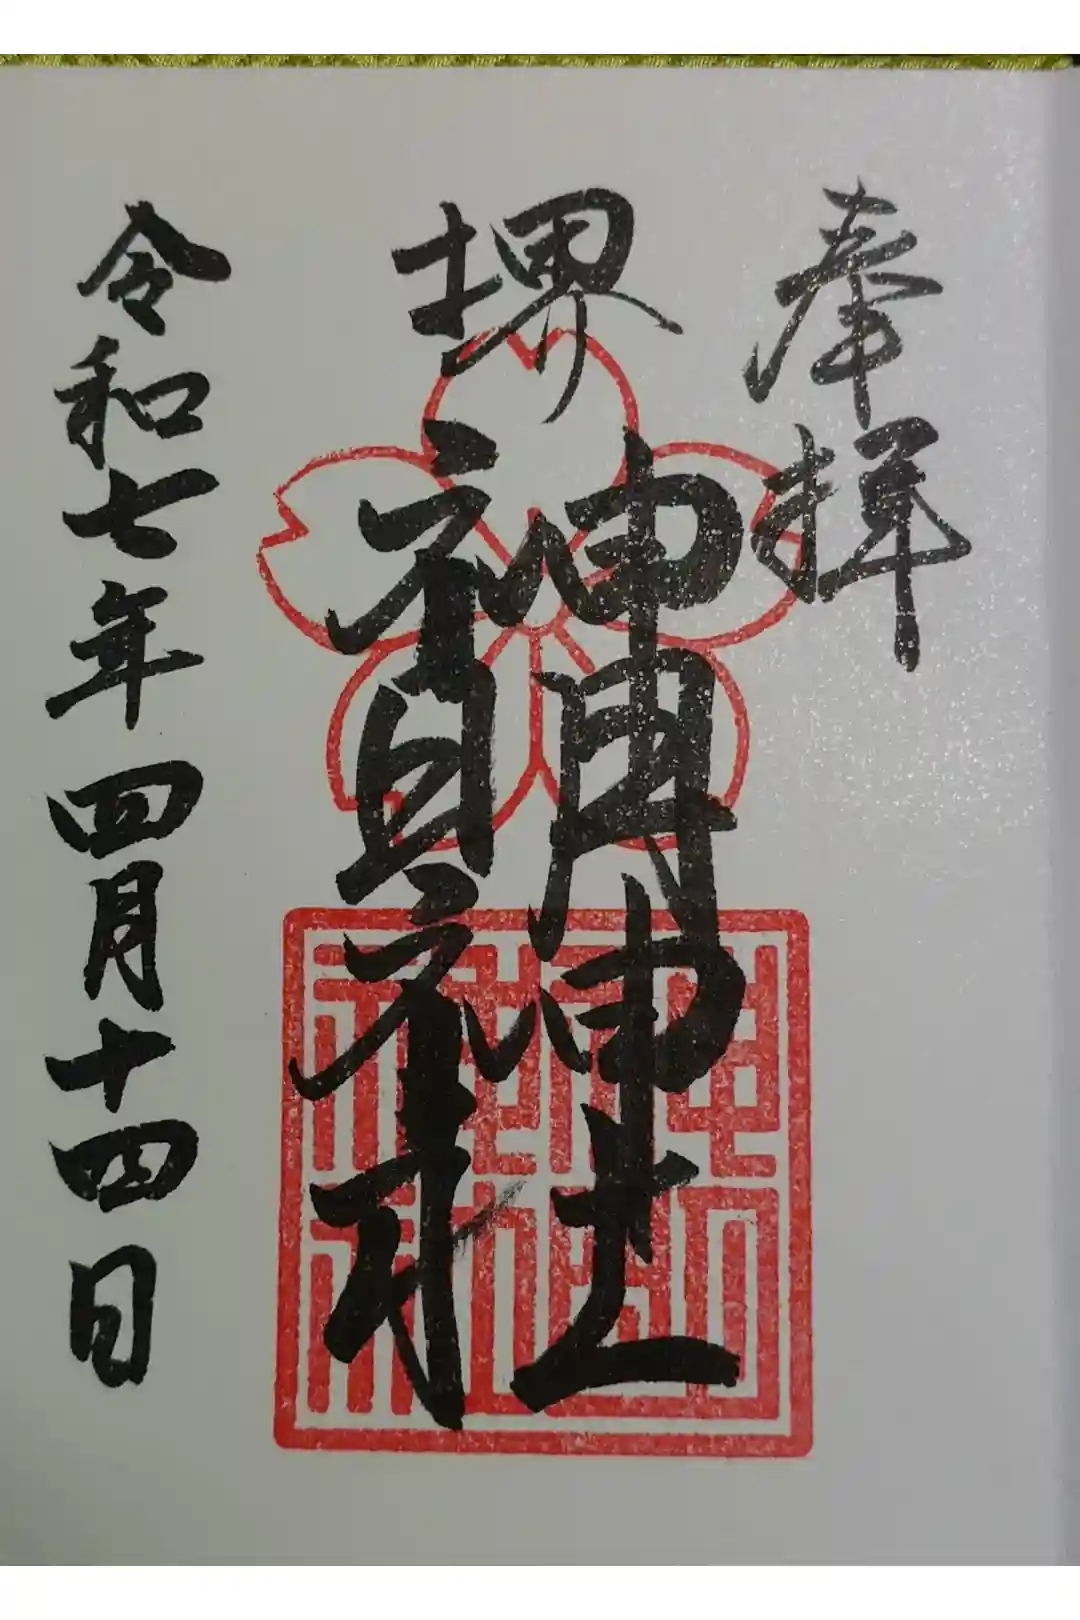 奉拝
堺
神明神社
令和七年四月十四日